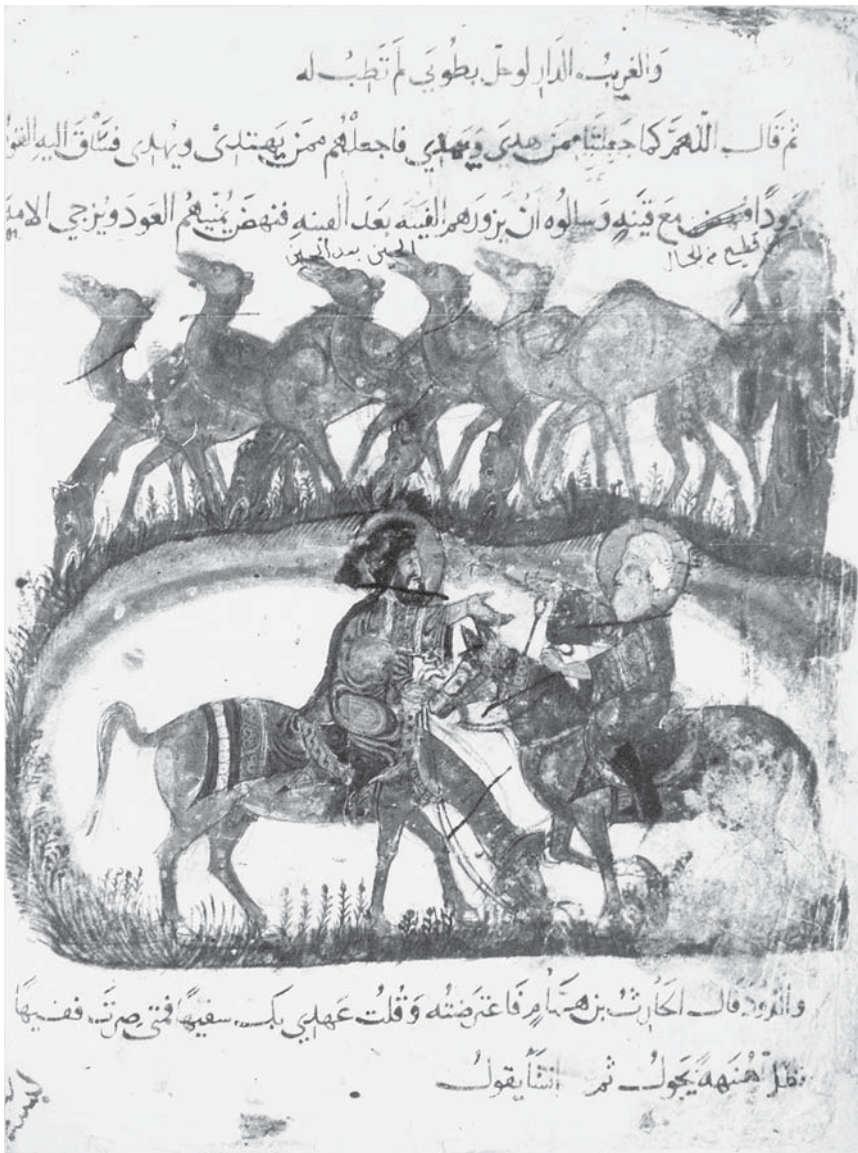 وَالغريبُ الدَار لوحلّ بطُوبَى لم تَطِبُ له
ثم قَال اللهمَّ كما جَعلتَنا ممن هُدىَ وَيَهدي فاجعلهُم ممن يَهتدىْ ويُهدى فسَاقَ اليهِ القو
ذودًا مع قَينهٍ وَسالوُه انْ يزورَهم الفَينه بعَد الفينه فنهضَ يُمنّيهُم العَودَ ويُزجي الامه
قطيع من الجمال
الحين بعد الحين
والذود قال الحَارثُ بن همَّامٍ فاعترضتُه وَقُلتُ عَهدِي بكَ سفيهًا فمتى صِرتَ فقيهًا
فظلّ هُنَيهةً يَجولُ ثم انشَأ يقولُ